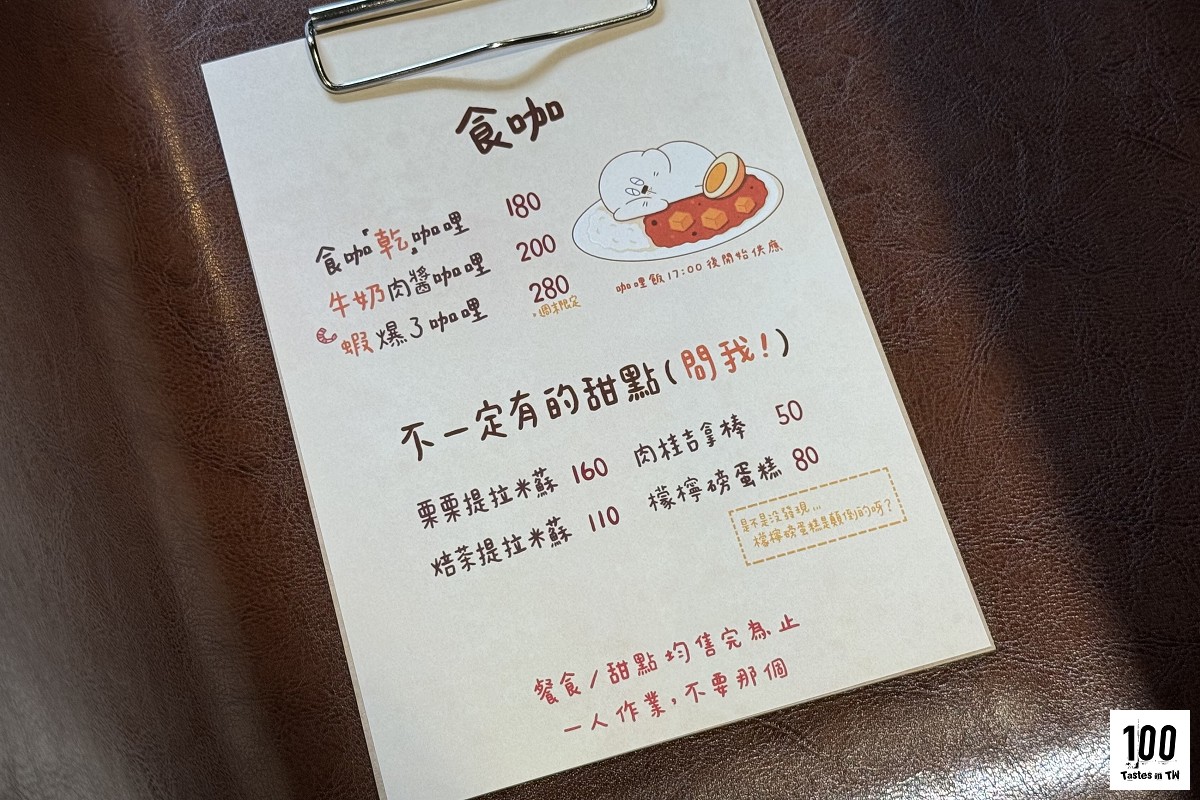 食咖
食咖「乾」咖哩 180
牛奶肉醬咖哩 200
蝦爆了咖哩 280
*週末限定
咖哩飯17:00後開始供應
不一定有的甜點(問我!)
栗栗提拉米蘇 160
肉桂吉拿棒 50
焙茶提拉米蘇 110
檬檸磅蛋糕 80
是不是沒發現...
檬檸磅蛋糕是顛倒的呀?
餐食/甜點均售完為止
一人作業,不要那個
100
Tastes in TW